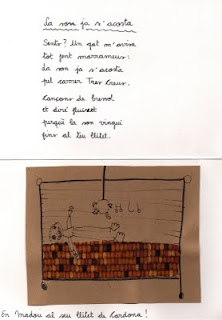 La son ja s'acosta
Sents? Un gat m'avisa
tot fent marrameus:
la son ja s'acosta
pel carrer Tres Creus.
Cançons de bressol
et diré fluixet
perquè la son vingui
fins al teu llitet.
En Madou al seu llitet de Cardona!